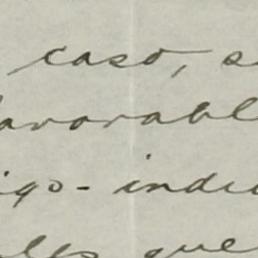 caso, s
avorabl
igo- indi
lls que